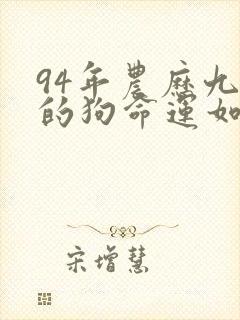 94年農歷九
的狗命運如
宋增慧